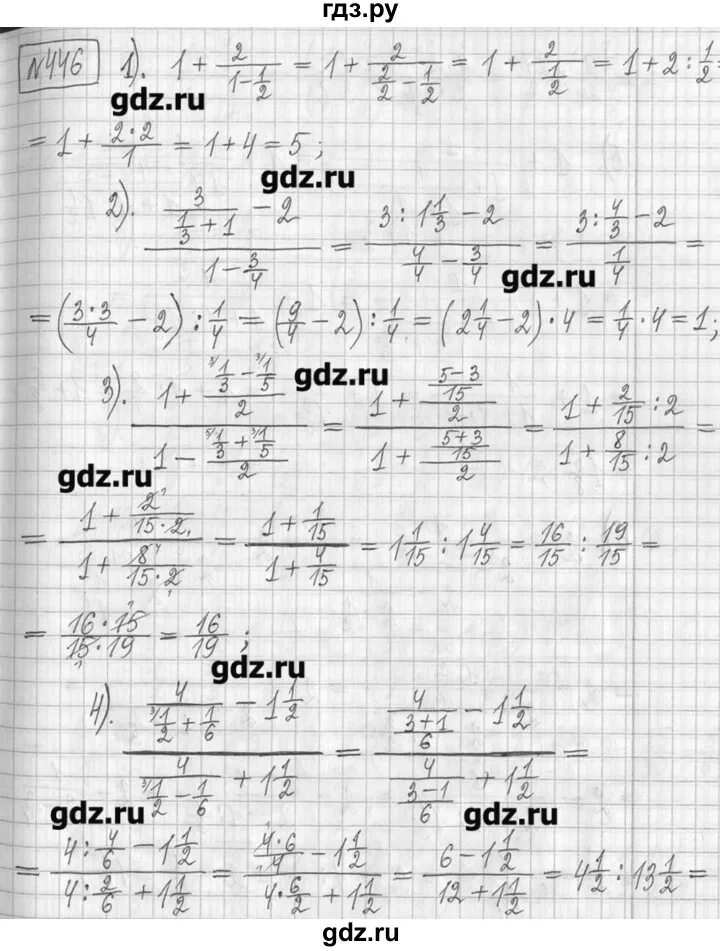 гдз.ру
№446 1). 1 + 2/(1 - 1/2) = 1 + 2/(2/2 - 1/2) = 1 + 2/(1/2) = 1 + 2 : 1/2 =
gdz.ru
= 1 + 2·2/1 = 1 + 4 = 5 ;
gdz.ru
2). (3/(1/3 + 1) - 2)/(1 - 3/4) = (3 : 1 1/3 - 2)/(4/4 - 3/4) = (3 : 4/3 - 2)/(1/4) =
gdz.ru
= (3·3/4 - 2) : 1/4 = (9/4 - 2) : 1/4 = (2 1/4 - 2) · 4 = 1/4 · 4 = 1 ;
gdz.ru
3). (1 + (5/ 1/3 - 3/ 1/5)/2)/(1 - (5/ 1/3 + 3/ 1/5)/2) = (1 + ((5-3)/15)/2)/(1 + ((5+3)/15)/2) = (1 + 2/15 : 2)/(1 + 8/15 : 2) =
gdz.ru
= (1 + 2/(15·2))/(1 + 8/(15·2)) = (1 + 1/15)/(1 + 4/15) = 1 1/15 : 1 4/15 = 16/15 : 19/15 =
= 16·15/(15·19) = 16/19 ;
gdz.ru
4). (4/(3/ 1/2 + 1/6) - 1 1/2)/(4/(3/ 1/2 - 1/6) + 1 1/2) = (4/((3+1)/6) - 1 1/2)/(4/((3-1)/6) + 1 1/2) =
gdz.ru
gdz.ru
= (4 : 4/6 - 1 1/2)/(4 : 2/6 + 1 1/2) = (4·6/4 - 1 1/2)/(4·6/2 + 1 1/2) = (6 - 1 1/2)/(12 + 1 1/2) = 4 1/2 : 13 1/2 =
gdz.ru